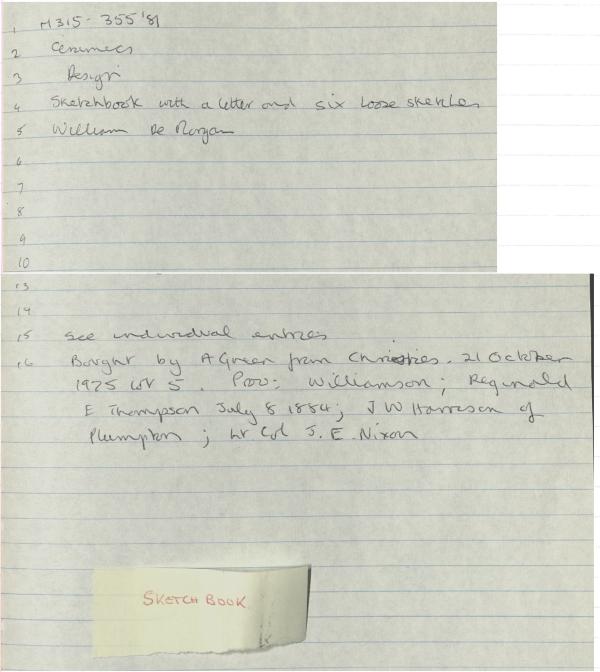 1 M315-355'81
2 Ceramics
3 Design
4 Sketchbook with a letter and six loose sketches
5 William De Morgan
6
7
8
9
10
13
14
15 See individual entries
16 Bought by A Green from Christies. 21 October
1975 lot 5. Prov: Williamson; Reginald
E Thompson July 8 1884; J W Harrison of
Plumpton; Lt Col J. E. Nixon
SKETCH BOOK